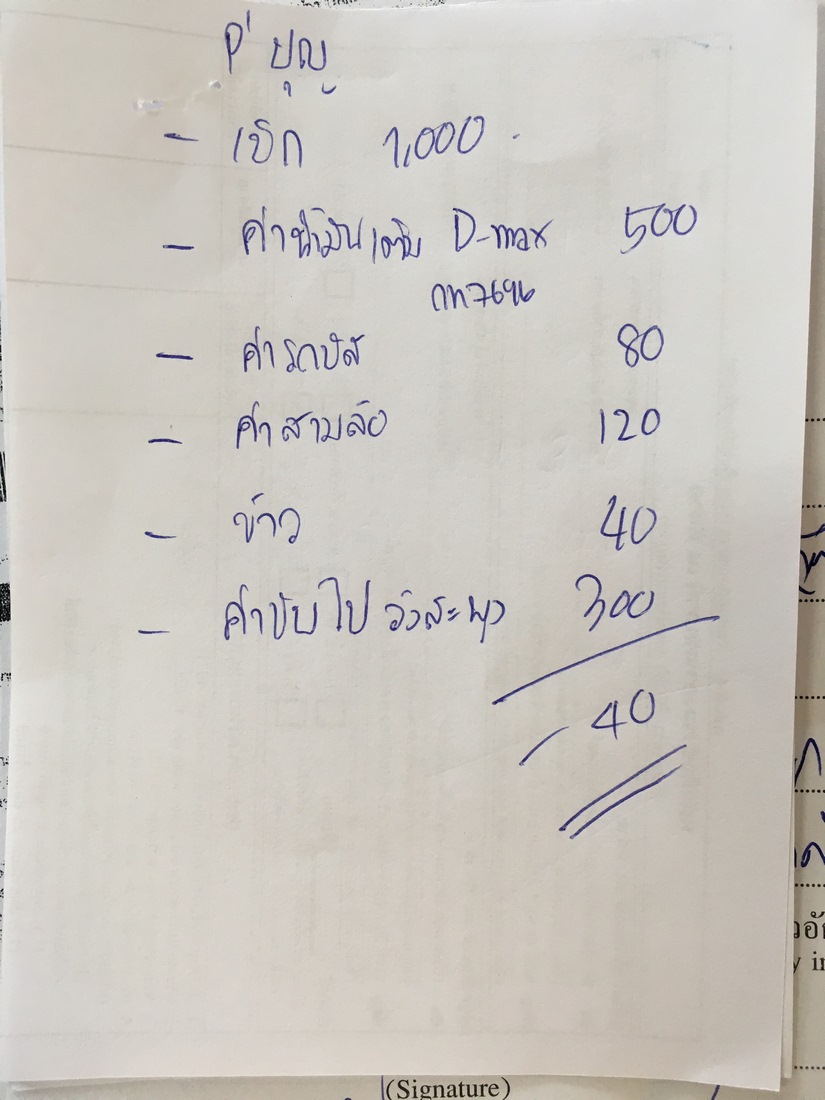 P' ปุญ
- เบิก 1,000 -
- ค่าน้ำมันเติม D-max 500
กท7696
- ค่ารถบัส 80
- ค่าสามล้อ 120
- ข้าว 40
- ค่าขับไป วังสะพุง 300
- 40
(Signature)